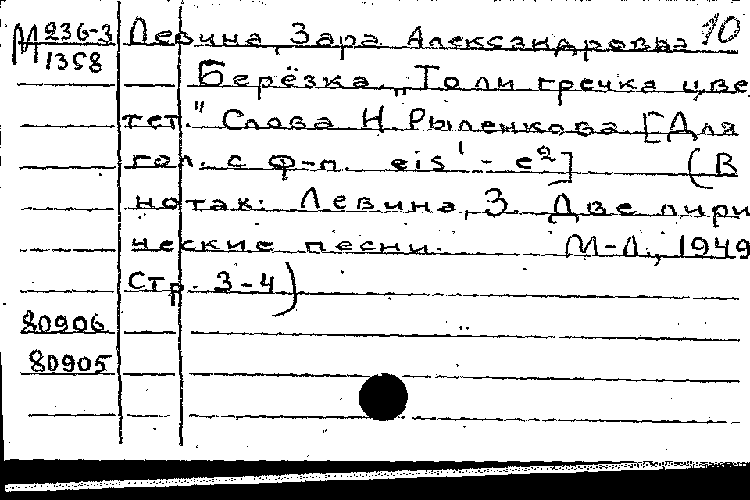 М 236-3 Левина, Зара Александровна 10
1358
Берёзка. „То ли гречка цве
тет." Слова Н. Рыленкова. [Для
гол. с ф-п. eis¹ - e²] (В
нотах: Левина, З. Две лири
ческие песни. М-Л., 1949
Стр. 3-4)
80906
80905